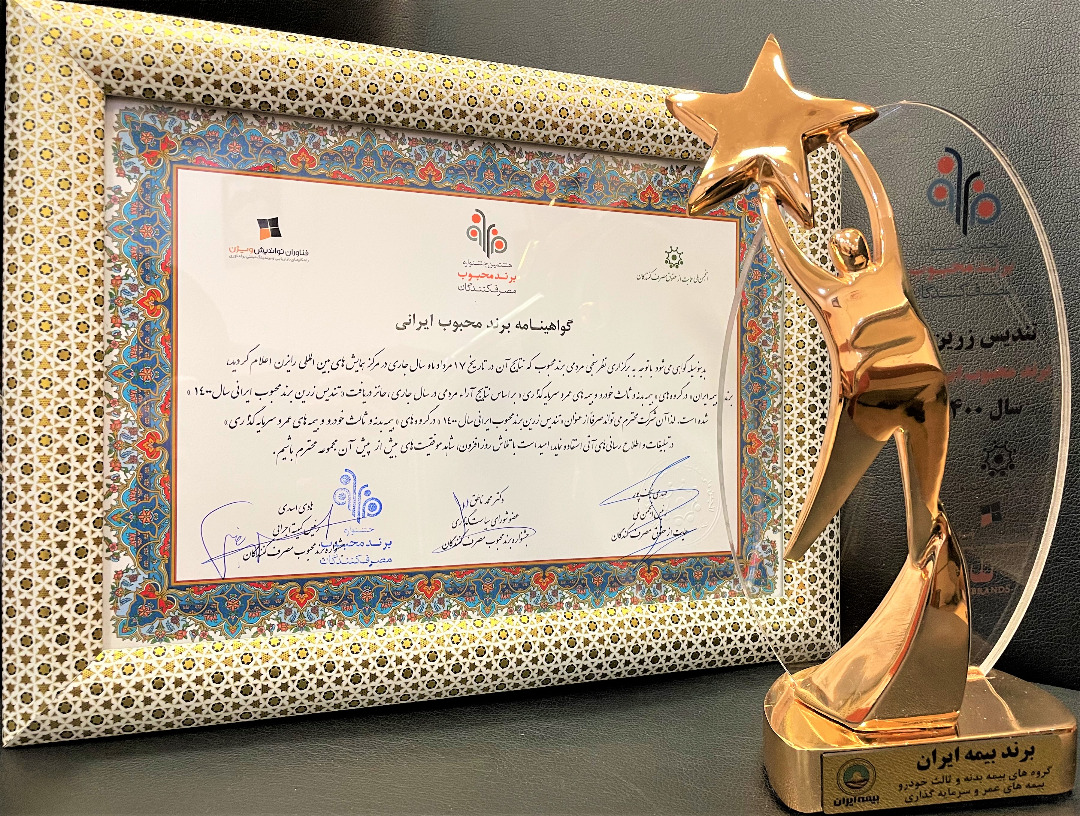 فناوران نواندیش وسیژن
هشتمین جشنواره
برند محبوب
مصرف‌کنندگان
انجمن ملی حمایت از حقوق مصرف کنندگان
گواهینامه برند محبوب ایرانی
بدینوسیله گواهی می‌شود باتوجه به برگزاری نظرسنجی مردمی برند محبوب که نتایج آن در تاریخ ۱۷ مرداد ماه سال جاری در مرکز همایش‌های بین المللی رایزن اعلام گردید،
برند «بیمه ایران» در گروه های «بیمه بدنه و ثالث خودرو و بیمه های عمر و سرمایه گذاری» بر اساس نتایج آراء مردمی در سال جاری، حائز دریافت «تندیس زرین برند محبوب ایرانی سال ۱۴۰۰»
شده است. لذا آن شرکت محترم می تواند صرفاً از عنوان «تندیس زرین برند محبوب ایرانی سال ۱۴۰۰» در گروه های «بیمه بدنه و ثالث خودرو و بیمه های عمر و سرمایه گذاری»
در تبلیغات و اطلاع رسانی های آتی استفاده نماید. امید است با تلاش روز افزون، شاهد موفقیت های بیش از پیش آن مجموعه محترم باشیم.
هادی اسدی
رئیس کمیته اجرائی
جشنواره برند محبوب مصرف کنندگان
جشنواره
برند محبوب
مصرف‌کنندگان
دکتر محمد
عضو شورای سیاست گذاری
جشنواره برند محبوب مصرف کنندگان
رئیس انجمن ملی
حمایت از حقوق مصرف کنندگان
برند محبوب
تندیس زرین
برند محبوب
سال ۱۴۰۰
BRANDS
برند بیمه ایران
گروه های بیمه بدنه و ثالث خودرو
بیمه های عمر و سرمایه گذاری
بیمه ایران